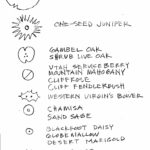 ONE-SEED JUNIPER
GAMBEL OAK
SHRUB LIVE OAK
UTAH SERVICEBERRY
MOUNTAIN MAHOGANY
CLIFFROSE
CLIFF FENDLERBUSH
WESTERN VIRGIN'S BOWER
CHAMISA
SAND SAGE
BLACKFOOT DAISY
GLOBE MALLOW
DESERT MARIGOLD